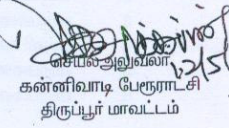 செயல் அலுவலர்
கன்னிவாடி பேரூராட்சி
திருப்பூர் மாவட்டம்